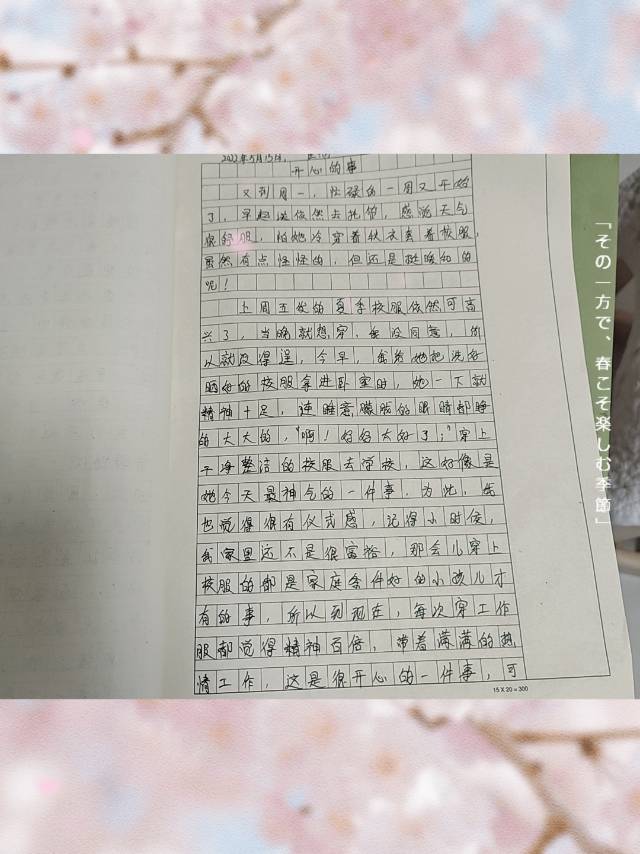 2022年5月15日
开心的事
又到周一，忙碌的一周又开始
了，早起送依然去托管，感觉天气
很舒服，怕她冷穿着秋衣套着校服，
虽然有点怪怪的，但还是挺暖和的
呢！
上周五发的夏季校服依然可高
兴了，当晚就想穿，我没同意，所
以就没得逞，今早，我给她把洗好
晒好的校服拿进卧室时，她一下就
精神十足，连睡意朦胧的眼睛都睁
的大大的，"啊！好好太好了；"穿上
干净整洁的校服去学校，这好像是
她今天最神气的一件事，为此，我
也觉得很有仪式感，记得小时候，
我家里还不是很富裕，那会儿穿上
校服的都是家庭条件好的小孩儿才
有的事，所以到现在，每次穿工作
服都觉得精神百倍，带着满满的热
情工作，这是很开心的一件事，可
15 X 20 = 300
「その一方で、春こそ楽しむ季節」